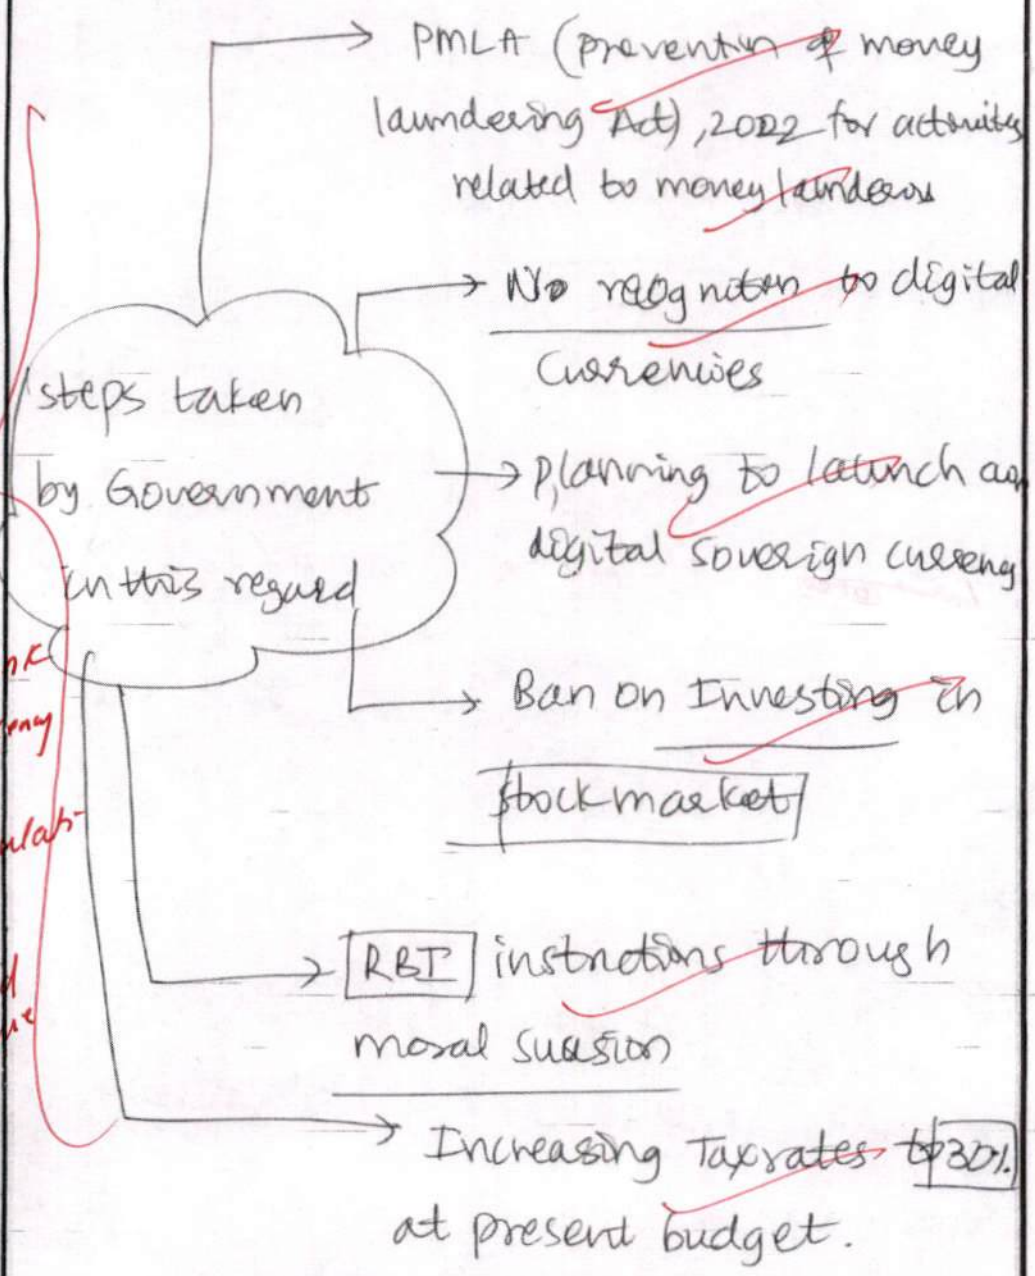 PMLA (prevention of money
laundering Act), 2022 for activities
related to money launders
No recognition to digital
Currencies
steps taken
by Government
in this regard
Planning to launch an
digital Soverign currency
Ban on Investing in
stockmarket
RBI instructions through
moral suasion
Increasing Tax rates to 30%
at present budget.